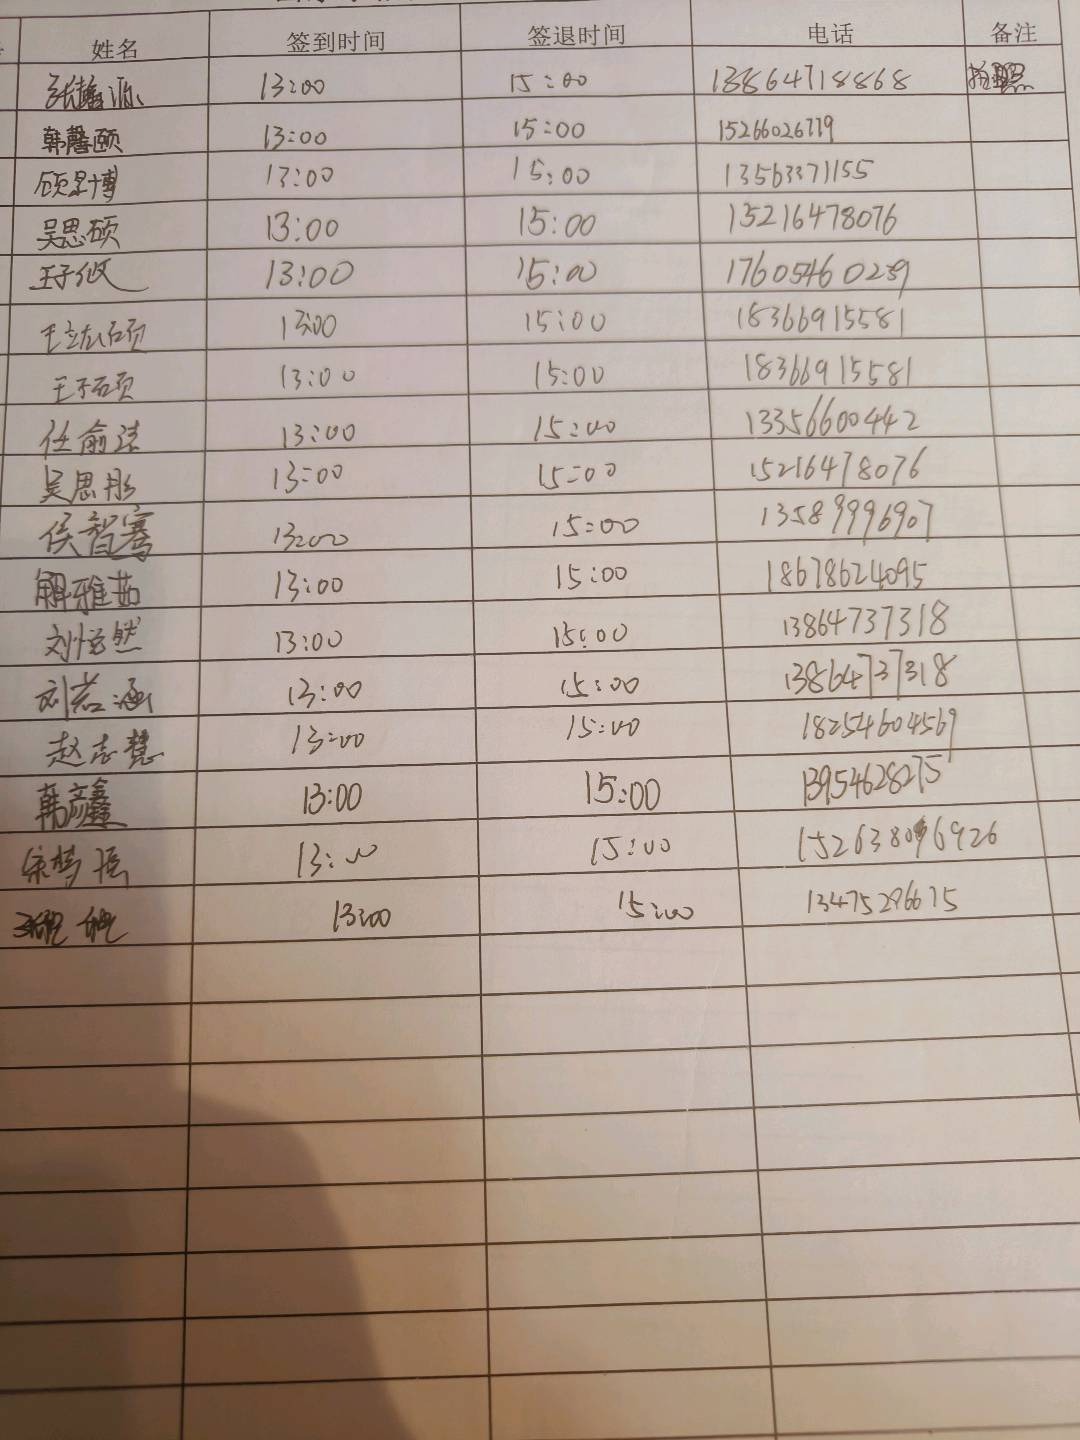 姓名 签到时间 签退时间 电话 备注
13:00 15:00 13864718868 拍照
韩馨颐 13:00 15:00 15266026779
顾景博 13:00 15:00 13563371155
吴思硕 13:00 15:00 15216478076
王子攸 13:00 15:00 17605460259
13:00 15:00 18366915581
王子硕 13:00 15:00 18366915581
任俞洁 13:00 15:00 13356600442
吴思彤 13:00 15:00 15216478076
侯智骞 13:00 15:00 13589996907
解雅茹 13:00 15:00 18678624095
刘悠然 13:00 15:00 13864737318
刘若涵 13:00 15:00 13864737318
赵志慧 13:00 15:00 18254604569
韩彦鑫 13:00 15:00 13954628275
13:00 15:00
13:00 15:00 13475296675